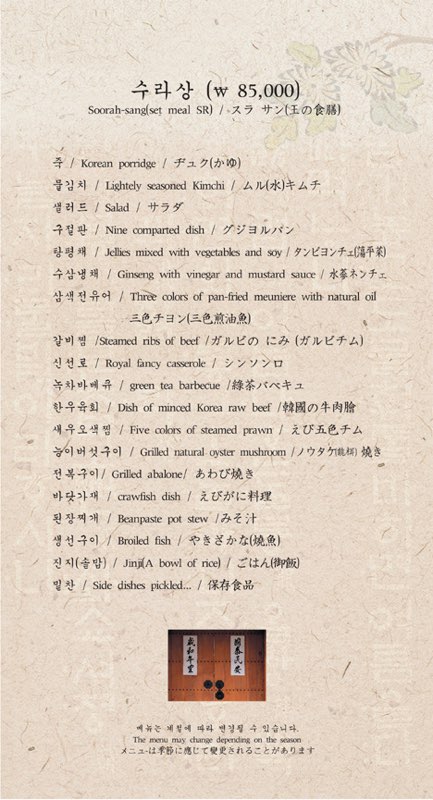 수라상 (₩ 85,000)
Soorah-sang(set meal SR) / スラ サン(王の食膳)
죽 / Korean porridge / ヂュク(かゆ)
물김치 / Lightely seasoned Kimchi / ムル(水)キムチ
샐러드 / Salad / サラダ
구절판 / Nine comparted dish / グジヨルパン
탕평채 / Jellies mixed with vegetables and soy / タンピヨンチェ(蕩平菜)
수삼냉채 / Ginseng with vinegar and mustard sauce / 水蔘ネンチェ
삼색전유어 / Three colors of pan-fried meuniere with natural oil
三色チヨン(三色煎油魚)
갈비찜 /Steamed ribs of beef /ガルビの にみ (ガルビチム)
신선로 / Royal fancy casserole / シンソンロ
녹차바베큐 / green tea barbecue /綠茶バベキュ
한우육회 / Dish of minced Korea raw beef /韓國の牛肉膾
새우오색찜 / Five colors of steamed prawn / えび五色チム
능이버섯구이 / Grilled natural oyster mushroom /ノウタケ 燒き
전복구이/ Grilled abalone/ あわび燒き
바닷가재 / crawfish dish / えびがに料理
된장찌개 / Beanpaste pot stew /みそ汁
생선구이 / Broiled fish / やきざかな(燒魚)
진지(솥밥) / Jinji(A bowl of rice) / ごはん(御飯)
밑찬 / Side dishes pickled... / 保存食品
歲和年豊
國泰民安
메뉴는 계절에 따라 변경될 수 있습니다.
The menu may change depending on the season
メニュ-は季節に應じて變更されることがあります